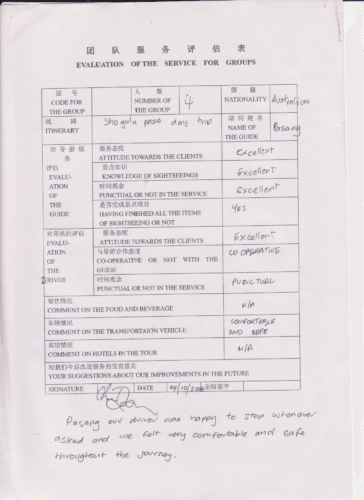 团 队 服 务 评 估 表
EVALUATION OF THE SERVICE FOR GROUPS
团 号
CODE FOR THE GROUP
人 数
NUMBER OF THE GROUP
4
国 籍
NATIONALITY
Australian
线 路
ITINERARY
Shogula pass day trip
陪同姓名
NAME OF THE GUIDE
Pasang
对导游服务评估
EVALUATION OF THE GUIDE
服务态度
ATTITUDE TOWARDS THE CLIENTS
Excellent
景点知识
KNOWLEDGE OF SIGHTSEEINGS
Excellent
时间观念
PUNCTUAL OR NOT IN THE SERVICE
Excellent
是否完成景点项目
HAVING FINISHED ALL THE ITEMS
OF SIGHTSEEING OR NOT
YES
对司机的评估
EVALUATION OF THE DRIVER
服务态度
ATTITUDE TOWARDS THE CLIENTS
Excellent
与导游合作态度
CO-OPERATIVE OR NOT WITH THE
GUIDE
CO OPERATIVE
时间观念
PUNCTUAL OR NOT IN THE SERVICE
PUNCTUAL
餐饮情况
COMMENT ON THE FOOD AND BEVERAGE
N/A
车辆情况
COMMENT ON THE TRANSPORTAION VEHICLE
COMFORTABLE
AND SAFE
宾馆情况
COMMENT ON HOTELS IN THE TOUR
N/A
对我们今后改进服务的宝贵意见
YOUR SUGGESTIONS ABOUT OUR IMPROVEMENTS IN THE FUTURE
SIGNATURE
DATE
全陪签字
Pasang our driver was happy to stop whenever
asked and we felt very comfortable and safe
throughout the journey.